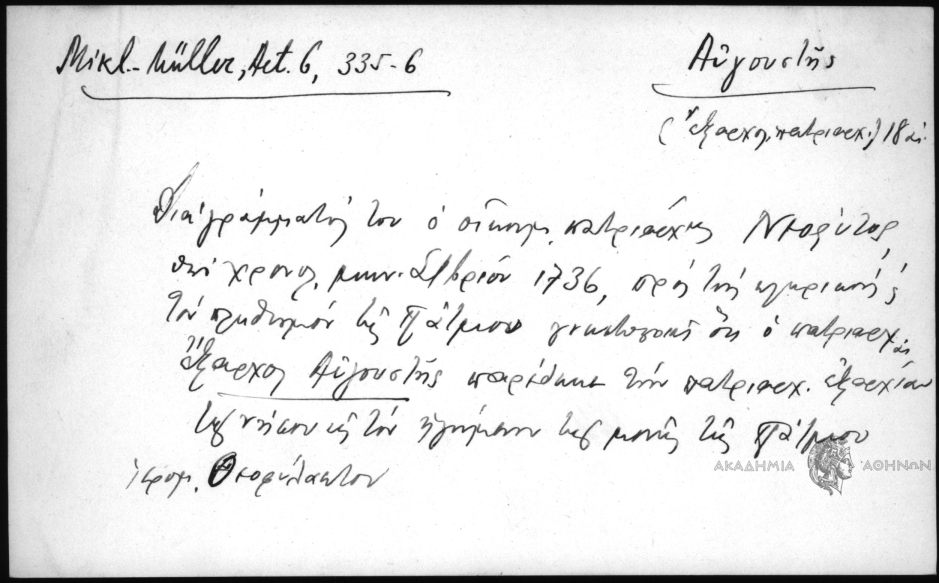 Mikl.-Müller, Act. 6, 335-6
Αὐγουστῆς
(ἔξαρχος πατριαρχ.) 18 αἰ.
Διὰ γράμματός του ὁ οἰκουμ. πατριάρχης Νεόφυτος,
ὑπὸ χρονολ. μην. Σ/βριον 1736, πρὸς τοὺς κληρικούς &
τὸν πληθυσμόν τῆς Πάτμου γνωστοποιεῖ ὅτι ὁ πατριαρχικὸς
ἔξαρχος Αὐγουστῆς παρέδωκε τὴν πατριαρχ. ἐξαρχίαν
τῆς νήσου εἰς τὸν ἡγούμενον τῆς μονῆς τῆς Πάτμου
ἱερομ. Θεοφύλακτον
ΑΚΑΔΗΜΙΑ ΑΘΗΝΩΝ